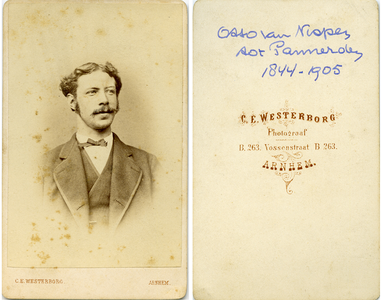 C.E. WESTERBORG.
ARNHEM.
Otto van Nispen
tot Pannerden
1844-1905
C. E. WESTERBORG
Photograaf
B. 263. Vossenstraat B 263.
ARNHEM.